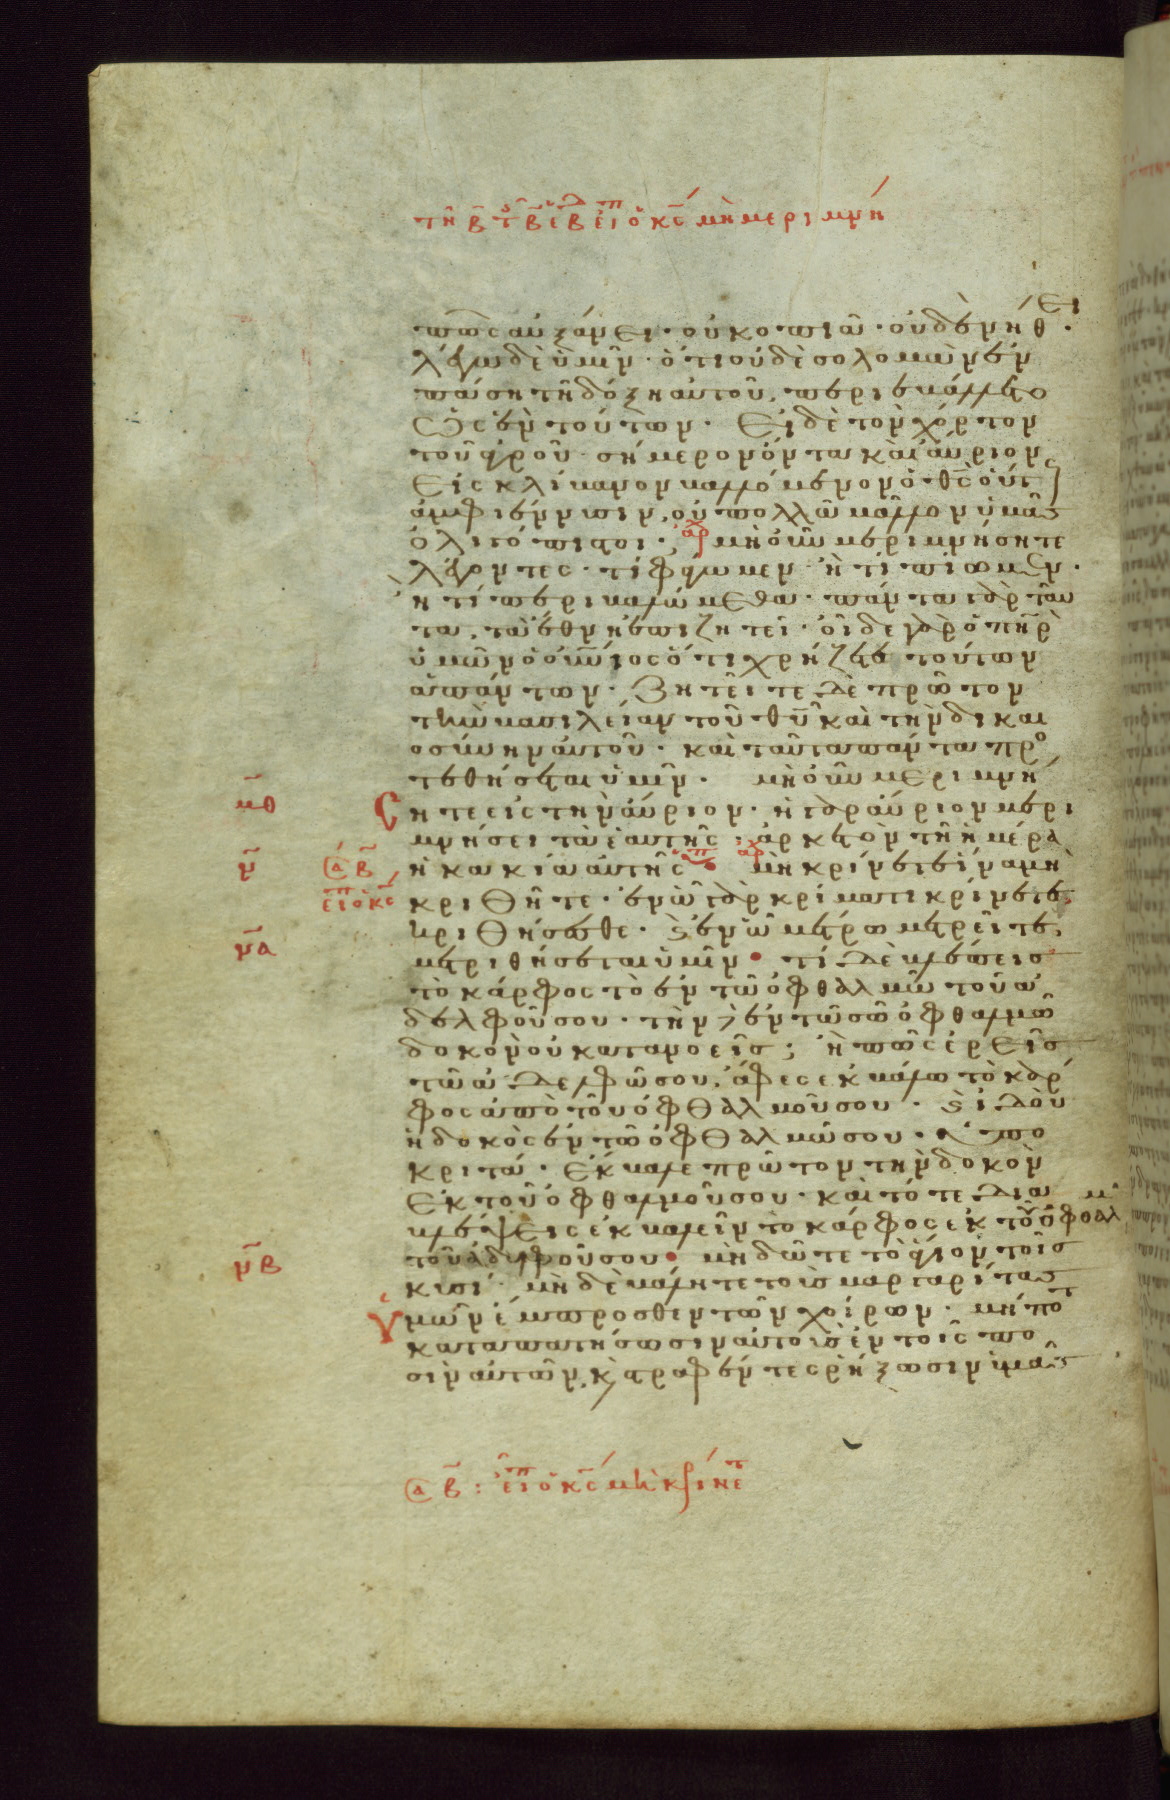 τῆ β τ β ε β εἶπ ὁ κς μὴ μεριμνή
πῶς αυξάνει· οὐ κοπιᾶ· οὐδὲ νήθει·
λέγω δὲ ὑμῖν· ὅτι οὐδὲ σολομὼν ἐν
πάση τῆ δόξη αὐτοῦ, περιεβάλλετο
ὡς ἓν τούτων· Εἰ δὲ τὸν χόρτον
τοῦ ἀγροῦ· σήμερον ὄντα καὶ αὔριον
Εἰς κλίβανον βαλλόμενον ὁ θς οὕτ
ἀμφιέννυσιν, οὐ πολλῶ μᾶλλον ὑμᾶς
ὀλιγόπιστοι· ἀρχ μὴ οὖν μεριμνήσητε
λέγοντες· τί φάγωμεν· ἢ τί πίωμεν·
ἢ τί περιβαλώμεθα· πάντα γὰρ ταῦ
τα, τὰ ἔθνη ἐπιζητεῖ· οἶδε γὰρ ὁ πηρ
ὑμῶν ὁ οὐνιος ὅτι χρήζετε τούτων
ἁπάντων· Ζητεῖτε δὲ πρῶτον
τὴν βασιλείαν τοῦ θυ καὶ τὴν δικαι
οσύνην αὐτοῦ· καὶ ταῦτα πάντα προ
τεθήσεται ὑμῖν· μὴ οὖν μεριμνή
μθ
σητε εἰς τὴν αὔριον· ἡ γὰρ αὔριον μερι
μνήσει τὰ ἑαυτῆς· ἀρκετὸν τῆ ἡμέρα
ν
σα β
ἡ κακία αὐτῆς· ἀρχ μὴ κρίνετε ἵνα μὴ
εἶπ ὁ κς
κριθῆτε· ἐν ὧ γὰρ κρίματι κρίνετε
κριθήσεσθε· καὶ ἐν ὧ μέτρω μετρεῖτε,
να
μετρηθήσεται ὑμῖν· τί δὲ βλέπεις
τὸ κάρφος τὸ ἐν τῶ ὀφθαλμῶ τοῦ ἀ
δελφοῦ σου· τὴν δὲ ἐν τῶ σῶ ὀφθαλμῶ
δοκὸν οὐ κατανοεῖς; ἢ πῶς ἐρεῖς
τῶ ἀδελφῶ σου, ἄφες ἐκβάλω τὸ κάρ
φος ἀπὸ τοῦ ὀφθαλμοῦ σου· καὶ ἰδοὺ
ἡ δοκὸς ἐν τῶ ὀφθαλμῶ σου· ὑπο
κριτά· ἔκβαλε πρῶτον τὴν δοκὸν
ἐκ τοῦ ὀφθαλμοῦ σου· καὶ τότε δια
βλέψεις ἐκβαλεῖν τὸ κάρφος ἐκ τοῦ ὀφθαλμ
τοῦ ἀδελφοῦ σου· μὴ δῶτε τὸ ἅγιον τοῖς
νβ
κυσί· μὴ δὲ βάλητε τοὺς μαργαρίτας
ὑμῶν ἔμπροσθεν τῶν χοίρων· μήποτ
καταπατήσωσιν αὐτοὺς ἐν τοῖς πο
σὶν αὐτῶν, καὶ στραφέντες ῥήξωσιν ὑμᾶς
σα β : εἶπ ὁ κς μὴ κρίνετ